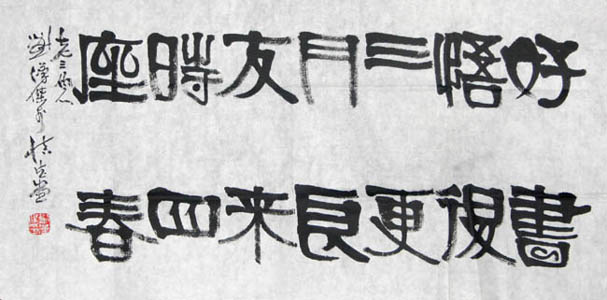 好書
悟後
三更
月良
友来
時四
座春